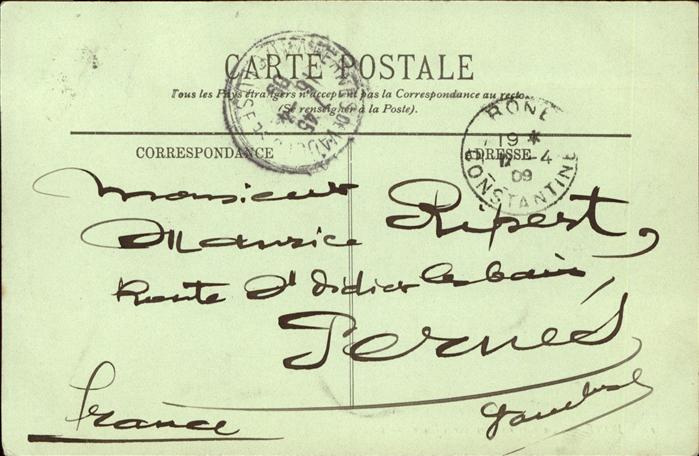 CARTE POSTALE
Tous les Pays étrangers n'acceptent pas la Correspondance au recto.
(Se renseigner à la Poste).
BONE
19 *
-4
09
CONSTANTINE
CORRESPONDANCE
ADRESSE
Monsieur
Maurice Ripert,
Route St Didier les bains
Pernes
Vaucluse
France